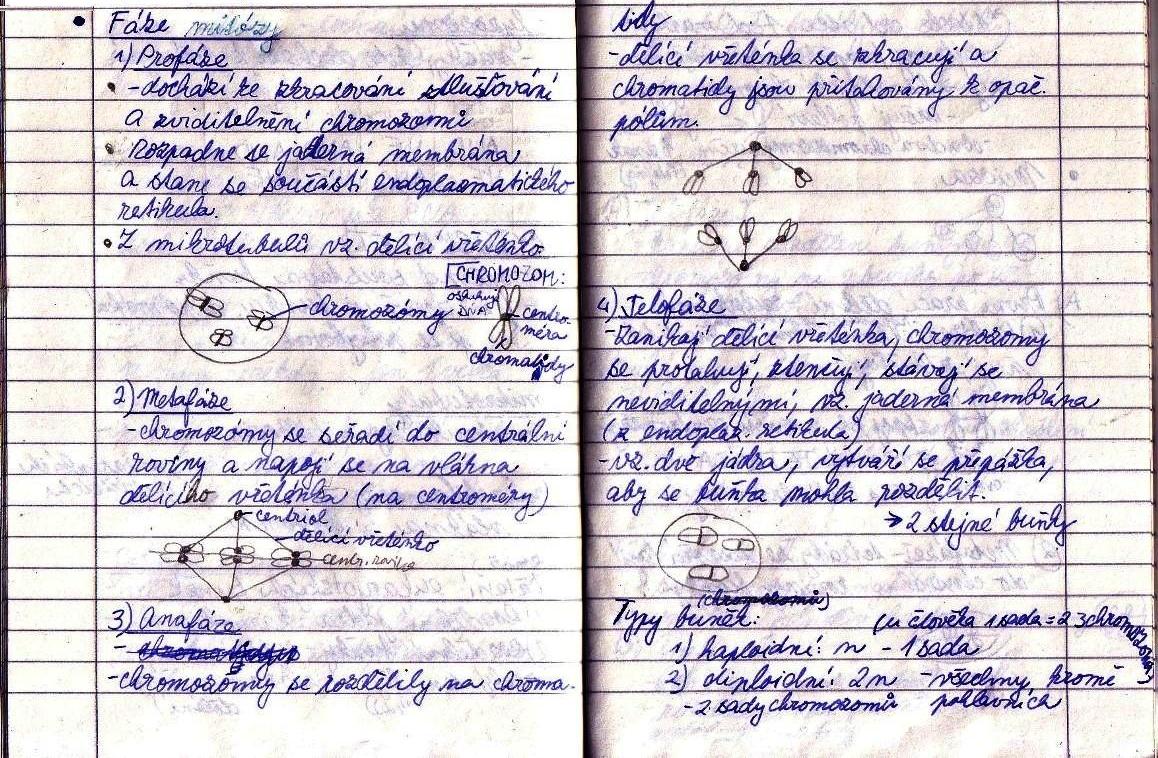 • Fáze mitózy
1) Profáze
• - dochází ke zkracování ztlušťování
a zviditelnění chromozomů
• rozpadne se jaderná membrána
a stane se součástí endoplazmatického
retikula.
• Z mikrotubulů vz. dělící vřeténko.
chromozómy
CHROMOZOM:
obsahují
DNA
centro-
méra
chromatidy
2) Metafáze
- chromozómy se seřadí do centrální
roviny a napojí se na vlákna
dělícího vřeténka (na centroméry)
centriol
dělící vřeténko
centr. rovina
3) Anafáze
- chromozómy se rozdělily na chroma-
tidy
- dělící vřeténka se zkracují a
chromatidy jsou přitahovány k opač.
pólům.
4) Telofáze
- zanikají dělící vřeténka, chromozomy
se protahují, ztenčují, stávají se
neviditelnými, vz. jaderná membrána
(z endoplaz. retikula)
- vz. dvě jádra, vytváří se přepážka,
aby se buňka mohla rozdělit.
→ 2 stejné buňky
(chromozomů)
Typy buněk: (u člověka 1 sada = 23 chromozomů)
1) haploidní: n - 1 sada
2) diploidní: 2n - všechny kromě
- 2 sady chromozomů pohlavních